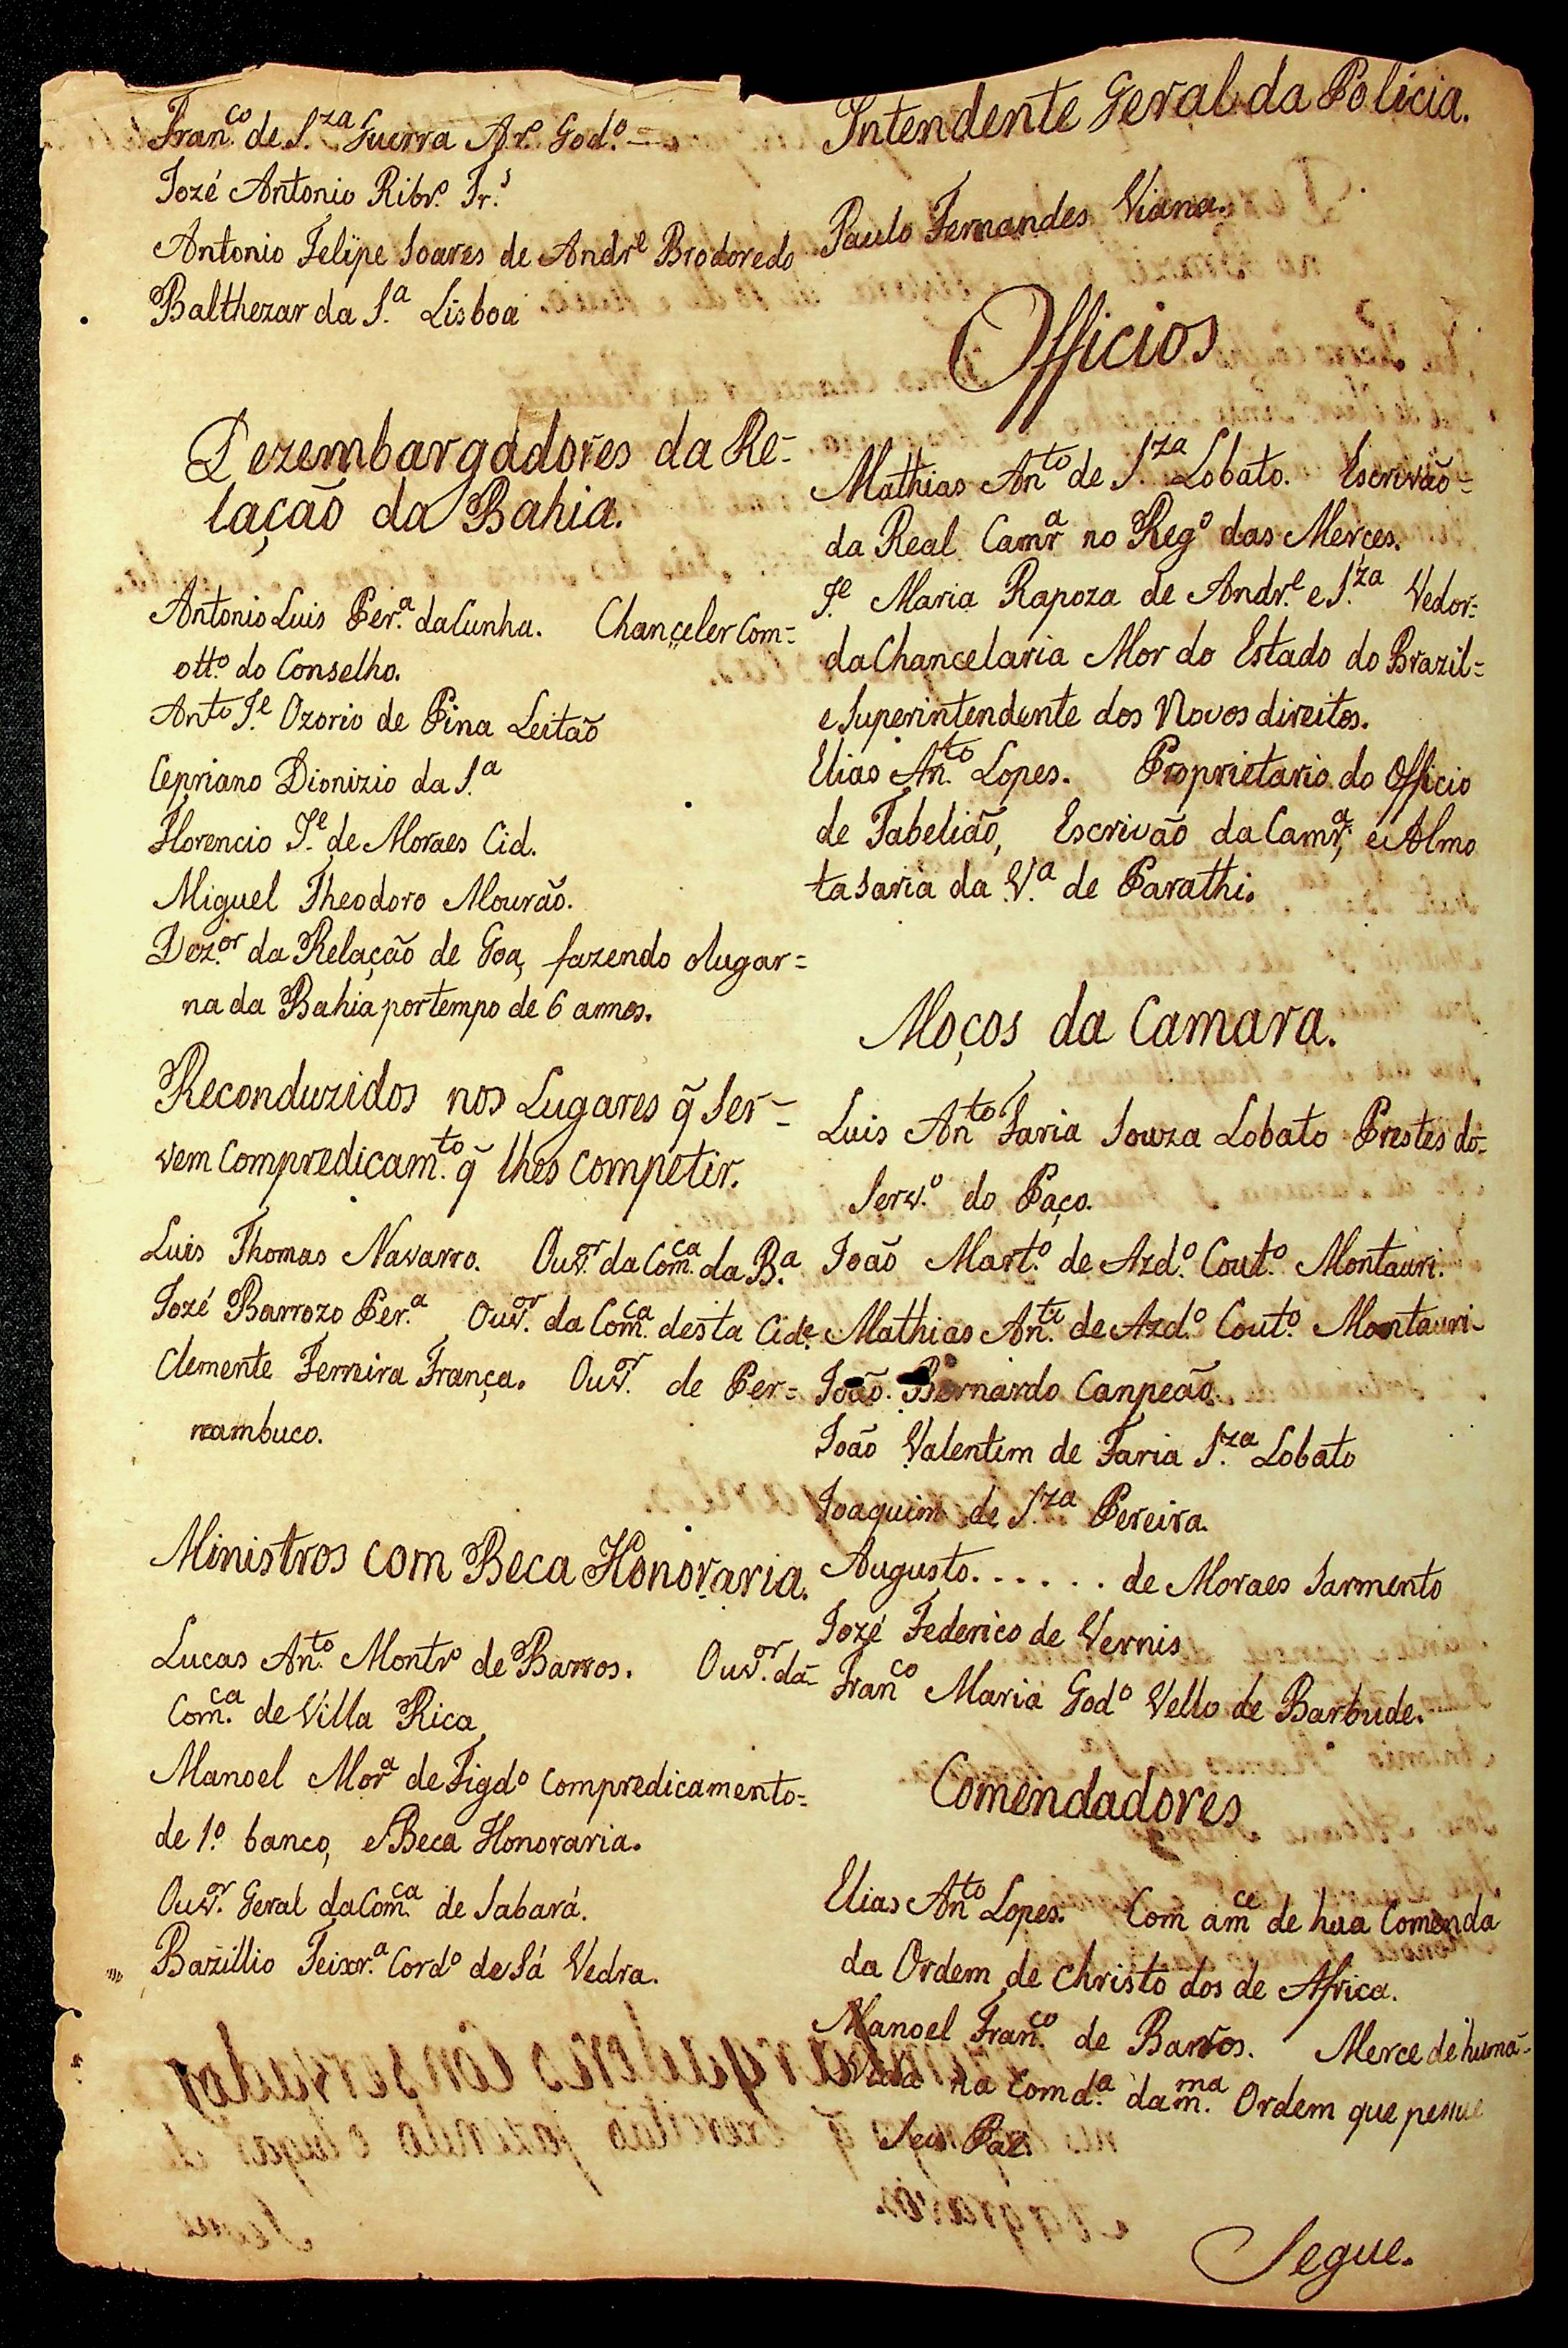 Fran.co de S.za Guerra Ar.o God.o =
Jozé Antonio Ribr.o Fr.s
Antonio Felipe Soares de Andr.e Brodoredo
Balthezar da S.a Lisboa
Dezembargadores da Re-
lação da Bahia.
Antonio Luis Per.a da Cunha. Chanceler Com-
ott.o do Conselho.
Ant.o J.e Ozorio de Pina Leitão
Cepriano Dionizio da S.a
Florencio J.e de Moraes Cid.
Miguel Theodoro Mourão.
Dez.or da Relação de Goa, fazendo olugar=
na da Bahia por tempo de 6 annos.
Reconduzidos nos Lugares q̃ Ser-
vem Compredicam.to q̃ lhes Competir.
Luis Thomas Navarro. Ouv.or da Com.ca da B.a
Jozé Barrozo Per.a Ouv.or da Com.ca desta Cid.e
Clemente Ferreira França. Ouv.or de Per=
nambuco.
Ministros com Beca Honoraria.
Lucas An.to Montr.o de Barros. Ouv.or da-
Com.ca de Villa Rica
Manoel Mor.a de Figd.o Compredicamento=
de 1.o banco, e Beca Honoraria.
Ouv.or Geral da Com.ca de Sabará.
Bazillio Teixr.a Cord.o de Sá Vedra.
Intendente Geral da Policia.
Paulo Fernandes Viana.
Officios
Mathias An.to de S.za Lobato. Escrivão=
da Real Camr.a no Reg.o das Merces.
J.e Maria Rapoza de Andr.e e S.za Vedor=
da Chancelaria Mor do Estado do Brazil=
e Superintendente dos Novos direitos.
Elias An.to Lopes. Proprietario do Officio
de Tabelião, Escrivão da Camr.a, e Almo
tasaria da V.a de Parathi.
Moços da Camara.
Luis An.to Faria Souza Lobato Prestes do-
Serv.o do Paço.
João Mart.o de Azd.o Cout.o Montauri.
Mathias An.to de Azd.o Cout.o Montauri-
João Bernardo Canpeão.
João Valentim de Faria S.za Lobato
Joaquim de S.za Pereira.
Augusto. . . . . . de Moraes Sarmento
Jozé Federico de Vernis
Fran.co Maria God.o Vello de Barbude.
Comendadores
Elias An.to Lopes. Com am.ce de hua Comenda
da Ordem de Christo dos de Africa.
Manoel Fran.co de Barros. Merce de huma-
Vida na Comd.a da m.ma Ordem que pessue
Seu Pae.
Segue.